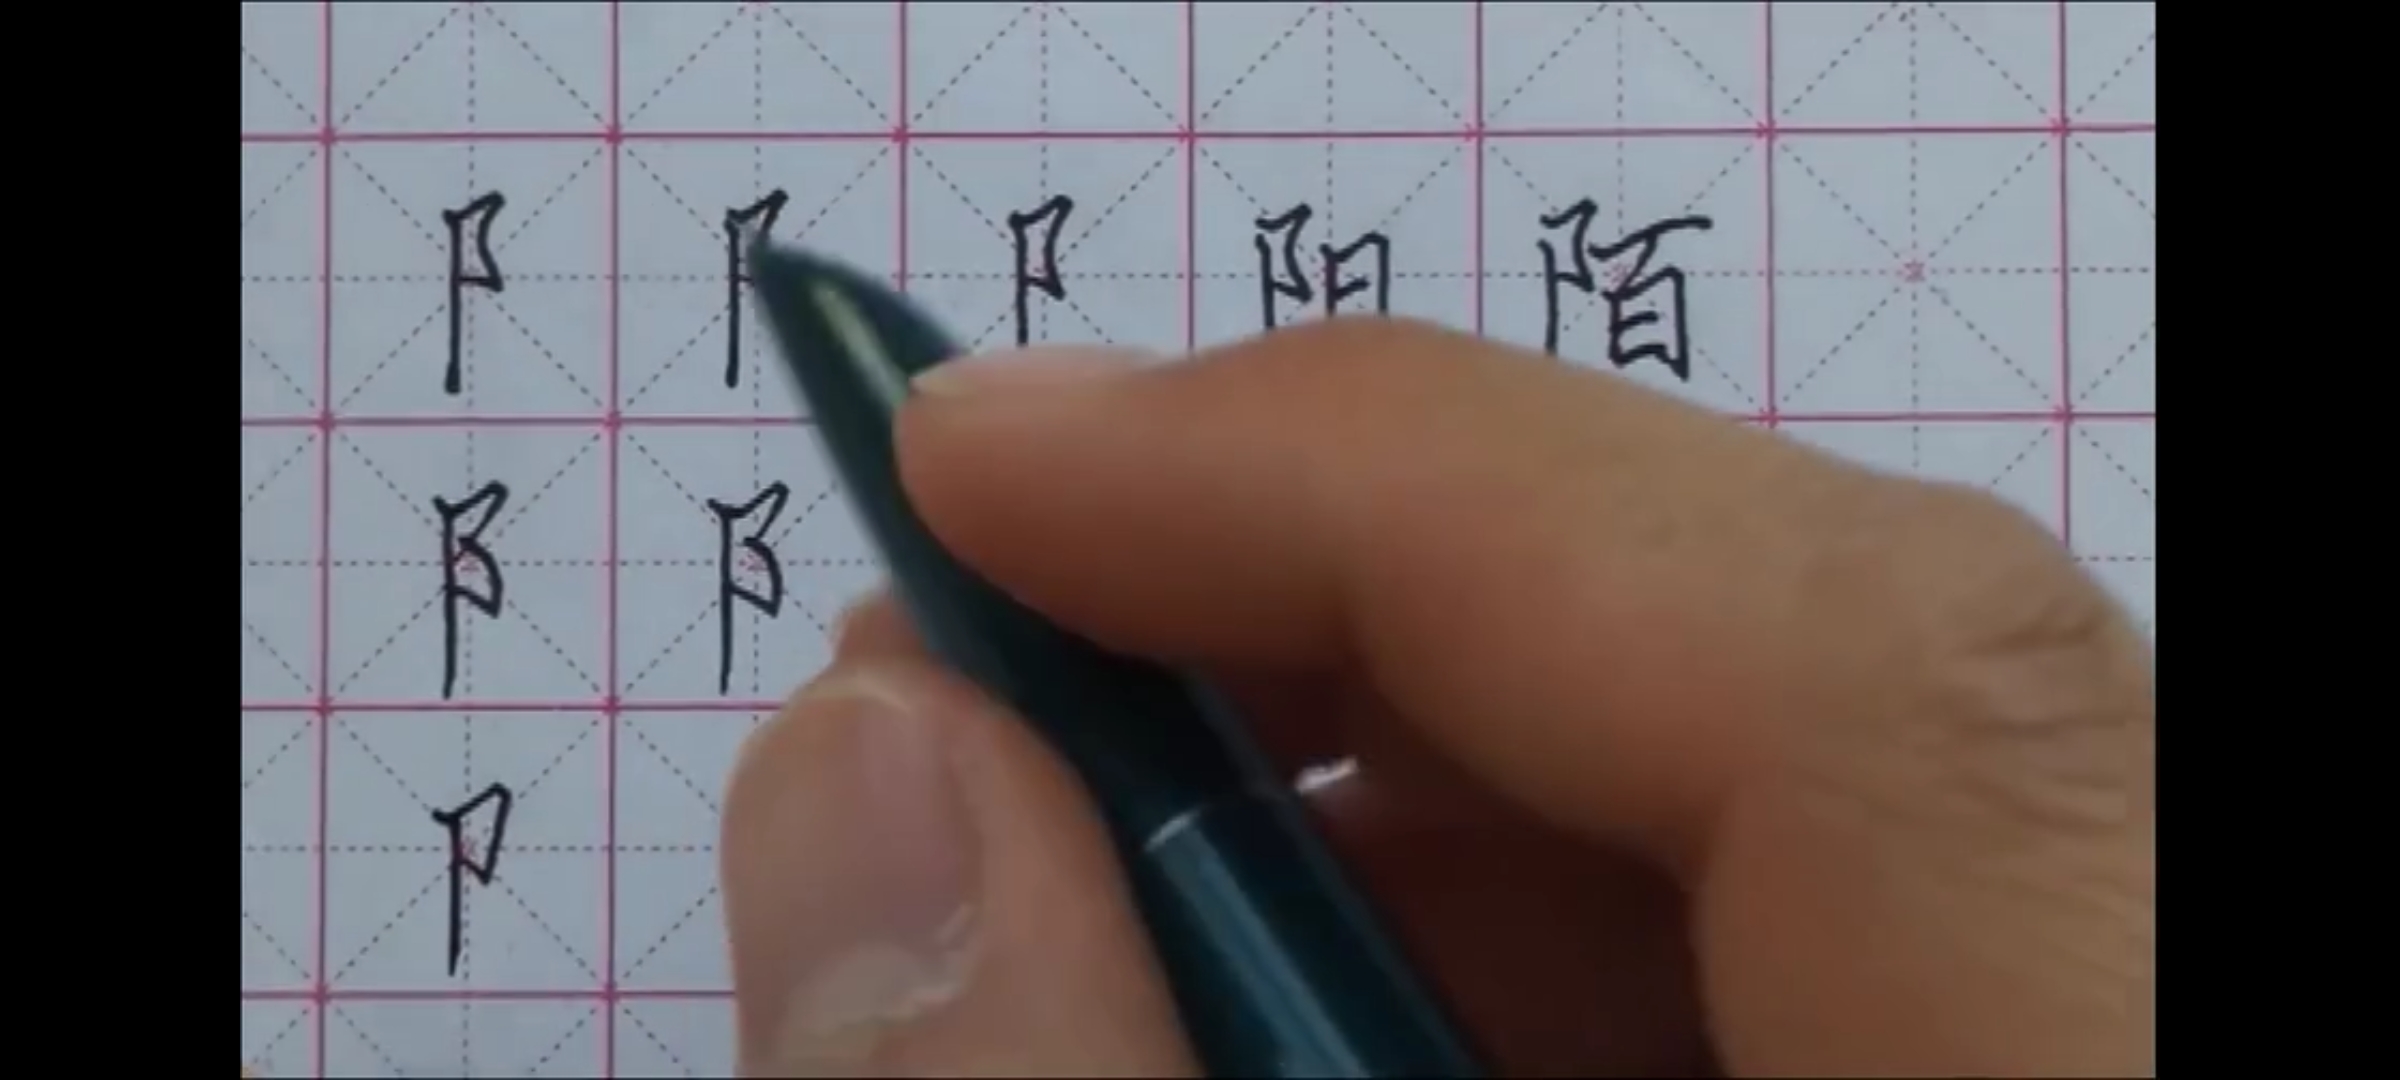 阝 阝 阝 阳 陌
阝 阝
卩